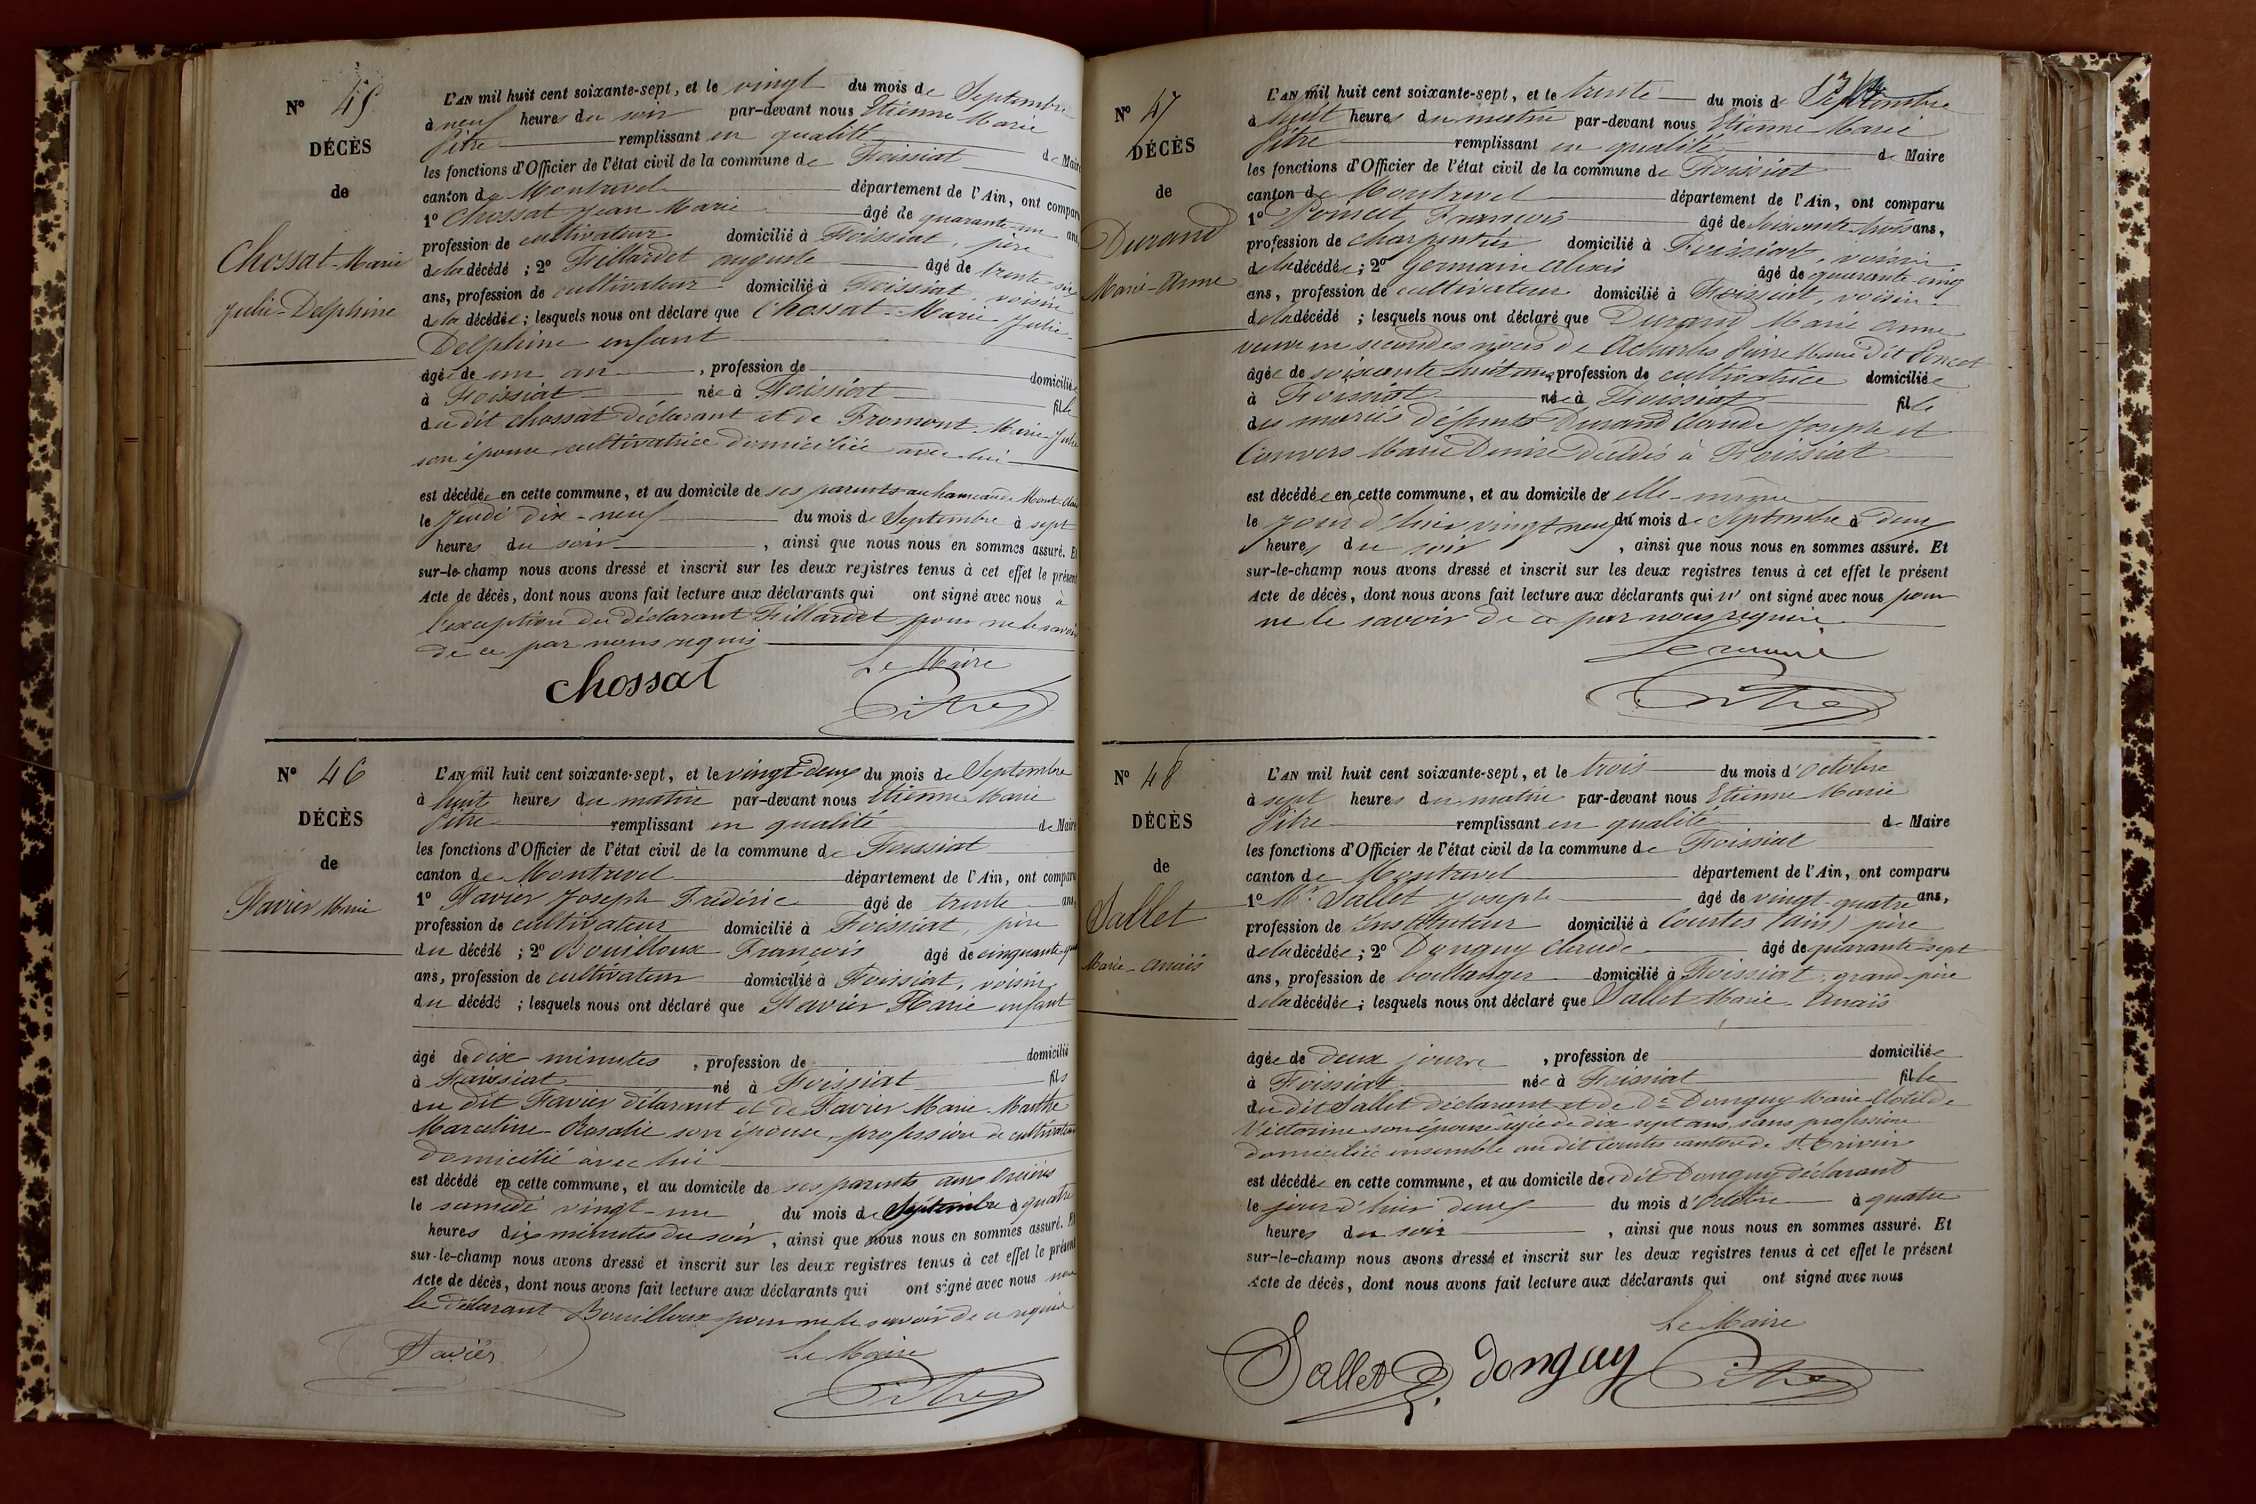 N° 45
DÉCÈS
de
Chossat Marie
Julie-Delphine
L'AN mil huit cent soixante-sept, et le vingt du mois de Septembre
à neuf heures du soir par-devant nous Etienne Marie
Pitre remplissant en qualité de Maire
les fonctions d'Officier de l'état civil de la commune de Foissiat
canton de Montrevel département de l'Ain, ont comparu
1° Chossat Jean Marie âgé de quarante-un ans
profession de cultivateur domicilié à Foissiat, père
de la décédé ; 2° Fillardet auguste âgé de trente-six
ans, profession de cultivateur domicilié à Foissiat, voisin
de la décédée ; lesquels nous ont déclaré que Chossat-Marie Julie-
Delphine enfant
âgée de un an , profession de domiciliée
à Foissiat née à Foissiat fille
du dit Chossat déclarant et de Fromont Marie-Julie
son épouse cultivatrice domiciliée avec lui
est décédée en cette commune, et au domicile de ses parents au hameau de
le Jeudi dix-neuf du mois de Septembre à sept
heures du soir , ainsi que nous nous en sommes assuré. Et
sur-le-champ nous avons dressé et inscrit sur les deux registres tenus à cet effet le présent
Acte de décès, dont nous avons fait lecture aux déclarants qui ont signé avec nous à
l'exception du déclarant Fillardet pour ne le savoir
de ce par nous requis
Le Maire
Chossat
Pitre
N° 46
DÉCÈS
de
Favier Marie
L'AN mil huit cent soixante-sept, et le vingt-deux du mois de Septembre
à huit heures du matin par-devant nous Etienne Marie
Pitre remplissant en qualité de Maire
les fonctions d'Officier de l'état civil de la commune de Foissiat
canton de Montrevel département de l'Ain, ont comparu
1° Favier Joseph Frédéric âgé de trente ans,
profession de cultivateur domicilié à Foissiat, père
du décédé ; 2° Bouilloux François âgé de cinquante
ans, profession de cultivateur domicilié à Foissiat, voisin
du décédé ; lesquels nous ont déclaré que Favier Marie enfant
âgé de dix minutes , profession de domicilié
à Foissiat né à Foissiat fils
du dit Favier déclarant et de Favier Marie-Marthe
Marceline-Rosalie son épouse, profession de cultivateur
domicilié avec lui
est décédé en cette commune, et au domicile de ses parents aux
le samedi vingt-un du mois de Septembre à quatre
heures dix minutes du soir , ainsi que nous nous en sommes assuré. Et
sur-le-champ nous avons dressé et inscrit sur les deux registres tenus à cet effet le présent
Acte de décès, dont nous avons fait lecture aux déclarants qui ont signé avec nous non
le déclarant Bouilloux pour ne le savoir de ce requis
Le Maire
Favier
Pitre
N° 47
DÉCÈS
de
Durand
Marie-Anne
L'AN mil huit cent soixante-sept, et le trente du mois de Septembre
à huit heures du matin par-devant nous Etienne Marie
Pitre remplissant en qualité de Maire
les fonctions d'Officier de l'état civil de la commune de Foissiat
canton de Montrevel département de l'Ain, ont comparu
1° Poncet François âgé de soixante-trois ans,
profession de charpentier domicilié à Foissiat, voisin
de la décédée ; 2° Germain alexis âgé de quarante-cinq
ans, profession de cultivateur domicilié à Foissiat, voisin
de la décédé ; lesquels nous ont déclaré que Durand Marie anne
veuve en secondes noces de Pierre Marie dit Poncet
âgée de soixante huit ans profession de cultivatrice domiciliée
à Foissiat née à Foissiat fille
des mariés défunts Durand Claude Joseph et
Convers Marie Denise décédés à Foissiat
est décédée en cette commune, et au domicile de elle-même
le jour d'hier vingt neuf du mois de Septembre à deux
heures du soir , ainsi que nous nous en sommes assuré. Et
sur-le-champ nous avons dressé et inscrit sur les deux registres tenus à cet effet le présent
Acte de décès, dont nous avons fait lecture aux déclarants qui n' ont signé avec nous pour
ne le savoir de ce par nous requis
Le maire
Pitre
N° 48
DÉCÈS
de
Sallet
Marie-anais
L'AN mil huit cent soixante-sept, et le trois du mois d'octobre
à sept heures du matin par-devant nous Etienne Marie
Pitre remplissant en qualité de Maire
les fonctions d'Officier de l'état civil de la commune de Foissiat
canton de Montrevel département de l'Ain, ont comparu
1° Mr Sallet Joseph âgé de vingt-quatre ans,
profession de Instituteur domicilié à Courtes (ain) père
de la décédée ; 2° Donguy Claude âgé de quarante sept
ans, profession de boullanger domicilié à Foissiat, grand-père
de la décédée ; lesquels nous ont déclaré que Sallet Marie Anaïs
âgée de deux jours , profession de domiciliée
à Foissiat née à Foissiat fille
du dit Sallet déclarant et de De Donguy Marie Clotilde
Victorine son épouse âgée de dix-sept ans, sans profession
domiciliée ensemble au dit Courtes canton de St. Trivier
est décédée en cette commune, et au domicile de dit Donguy déclarant
le jour d'hier deux du mois d'Octobre à quatre
heures du soir , ainsi que nous nous en sommes assuré. Et
sur-le-champ nous avons dressé et inscrit sur les deux registres tenus à cet effet le présent
Acte de décès, dont nous avons fait lecture aux déclarants qui ont signé avec nous
Le Maire
Sallet Donguy Pitre